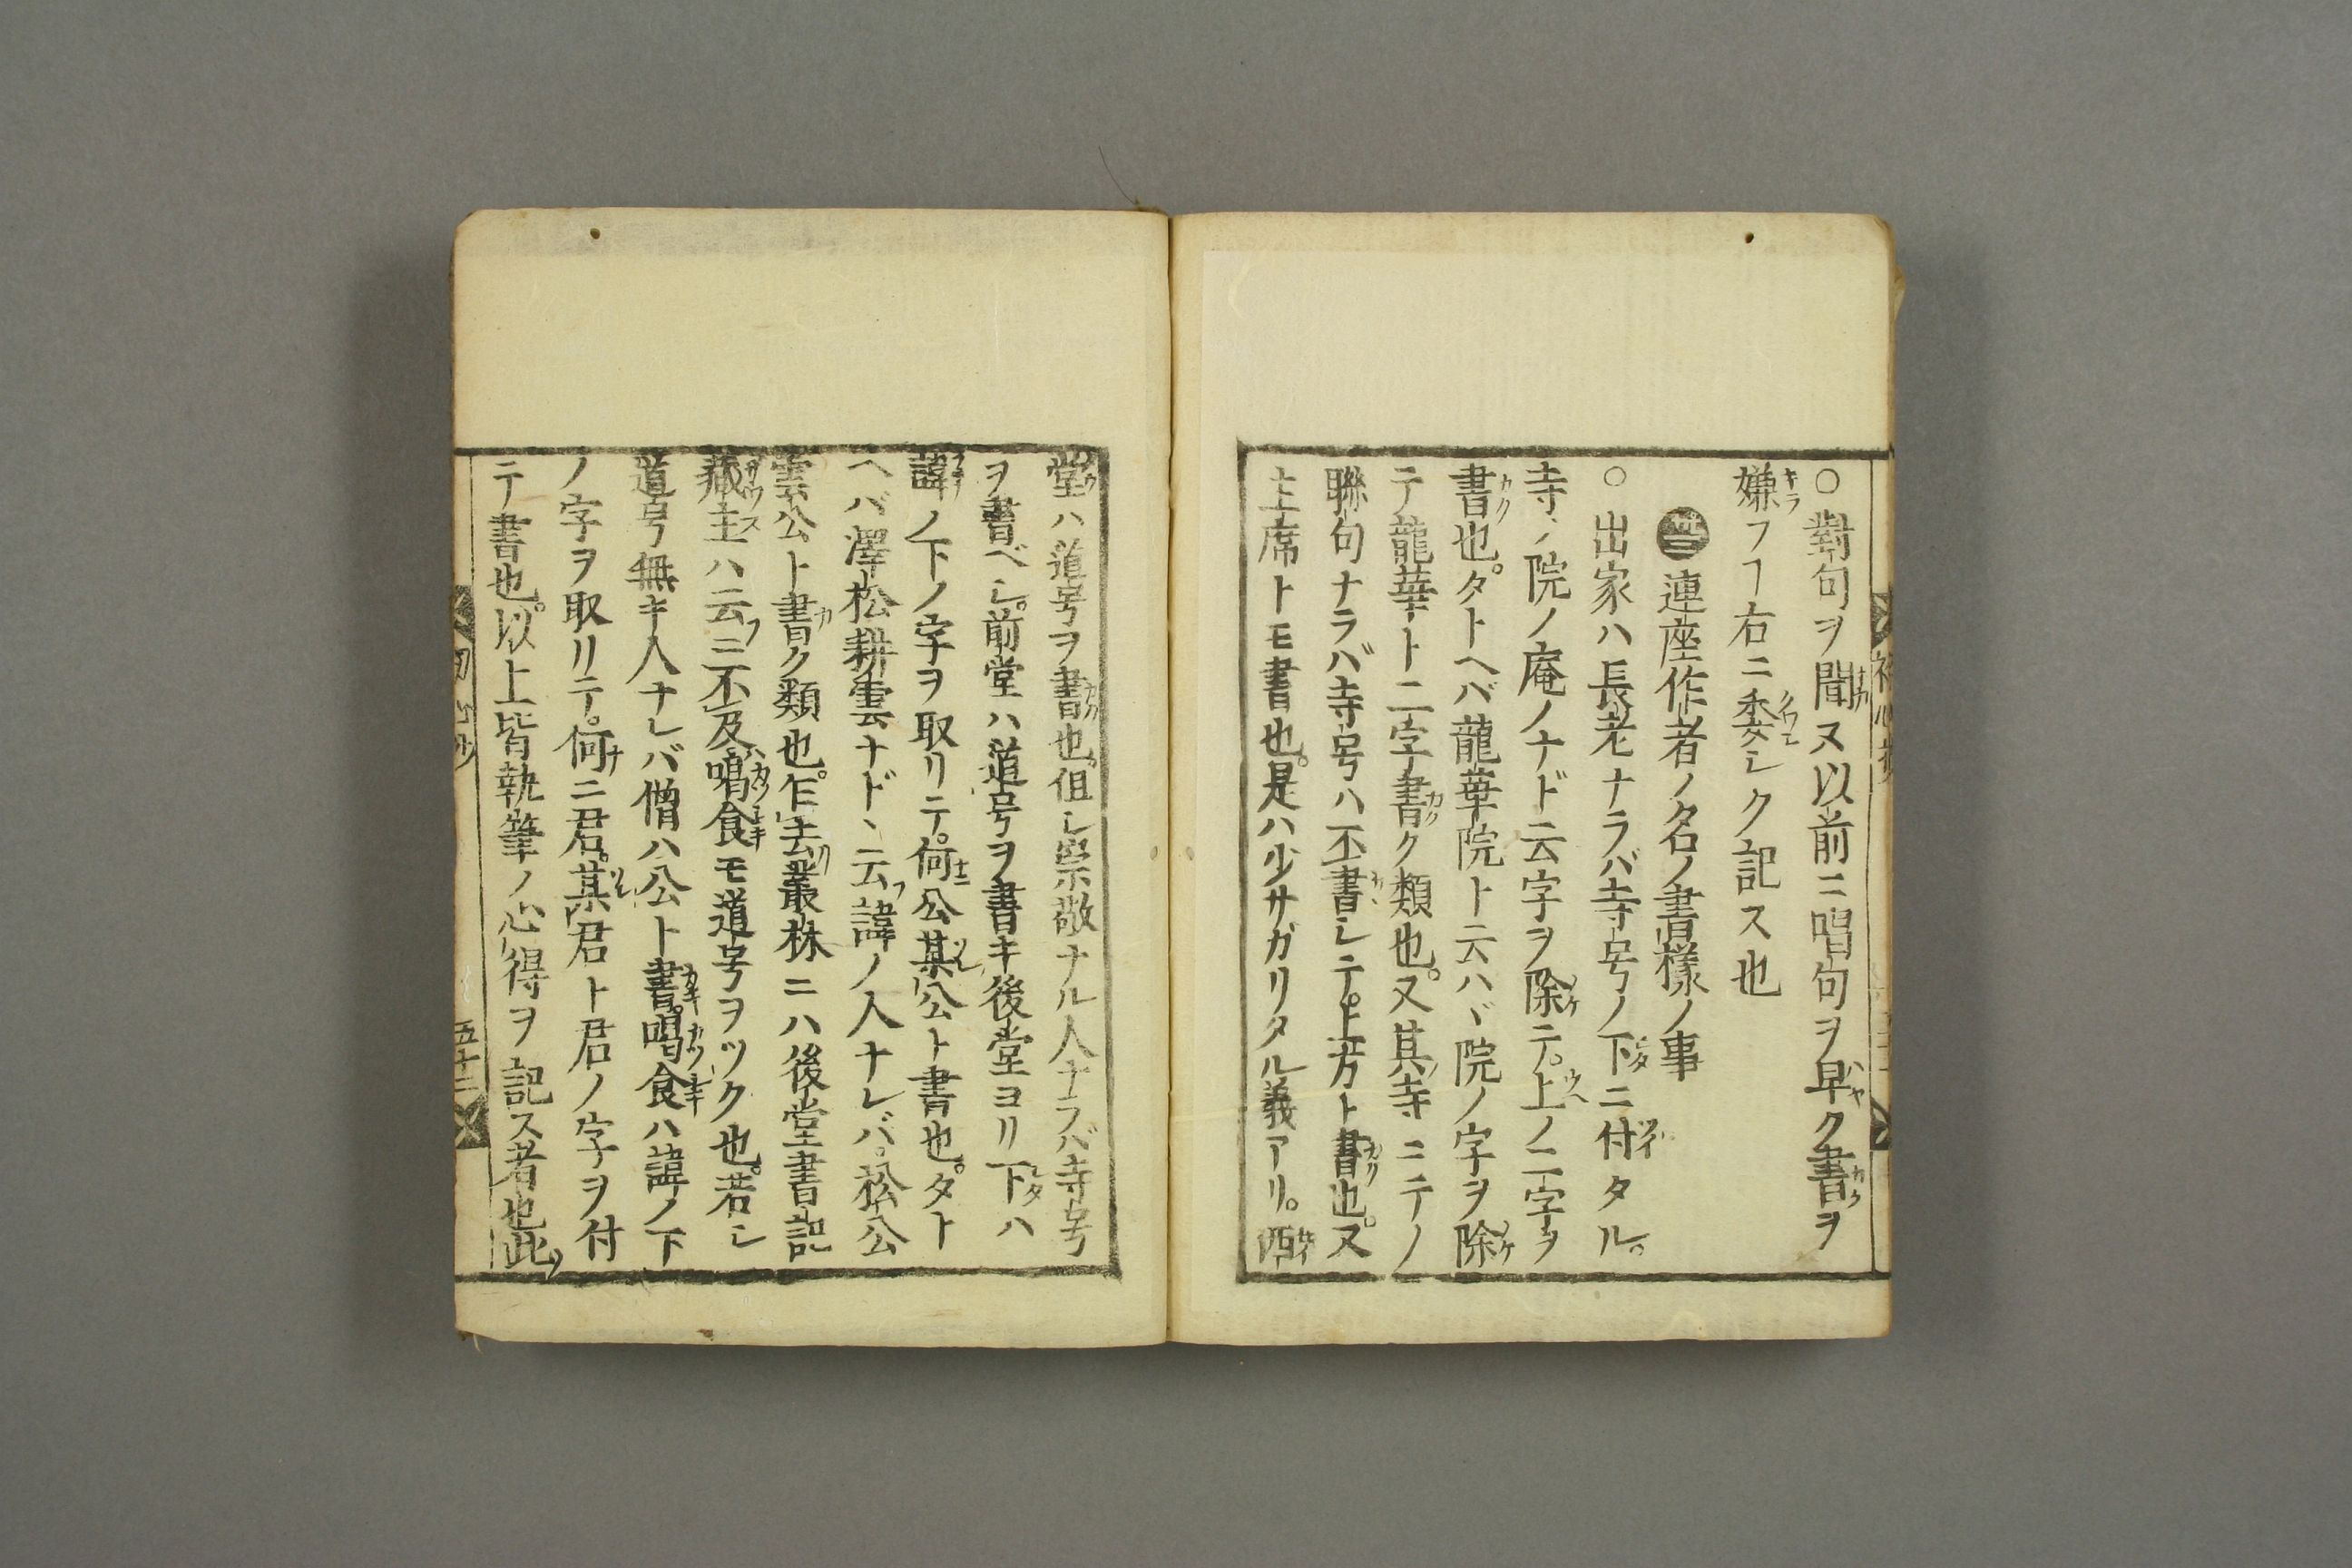 ○對句ヲ聞ヌ以前ニ唱句ヲ早ク書ヲ
嫌フヿ右ニ委シク記ス也
卅三 連座作者ノ名ノ書樣ノ事
○出家ハ長老ナラバ寺号ノ下ニ付タル。
寺ノ院ノ庵ノナド云字ヲ除テ。上ノ二字ヲ
書也。タトヘバ龍華院ト云ハヾ院ノ字ヲ除
テ龍華ト二字書ク類也。又其寺ニテノ
聯句ナラバ寺号ハ不書シテ。上方ト書也。又
主席トモ書也。是ハ少サガリタル義アリ。西
堂ハ道号ヲ書也。但シ崇敬ナル人ナラバ寺号
ヲ書ベシ。前堂ハ道号ヲ書キ後堂ヨリ下ハ
諱ノ下ノ字ヲ取リテ。何公某公ト書也。タト
ヘバ澤松耕雲ナドヽ云諱ノ人ナレバ。松公
雲公ト書ク類也。乍去叢林ニハ後堂書記
藏主ハ云ニ不及喝食モ道号ヲツク也。若シ
道号無キ人ナレバ僧ハ公ト書。喝食ハ諱ノ下
ノ字ヲ取リテ。何ニ君。某君ト君ノ字ヲ付
テ書也。以上皆執筆ノ心得ヲ記ス者也此
五十二